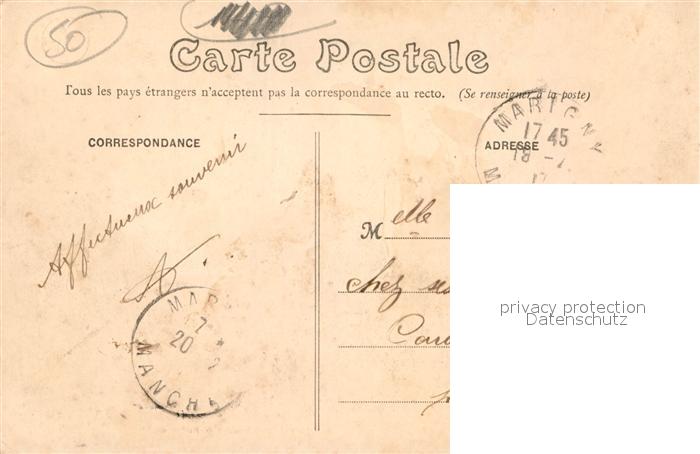 50
Carte Postale
Tous les pays étrangers n'acceptent pas la correspondance au recto. (Se renseigner à la poste)
CORRESPONDANCE
ADRESSE
MARIGNY
17 45
18 -7
Affectueux souvenir
Melle
chez
privacy protection
Datenschutz
MAR
7
20
MANCHE